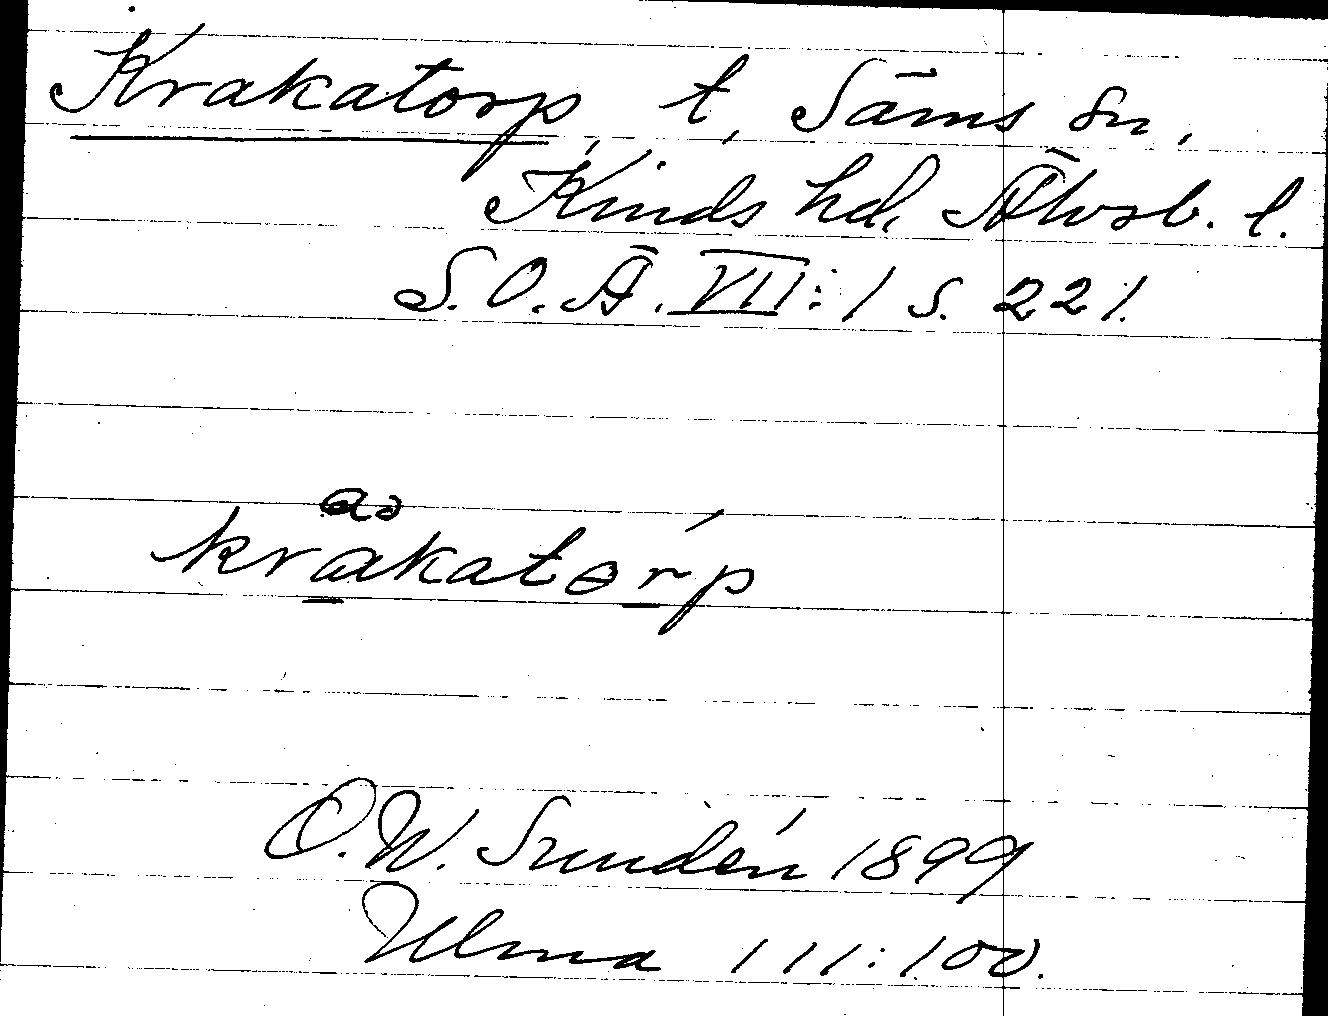 Krakatorp, t, Säms sn,
Kinds hd, Älvsb. l.
S. O. Ä. VII:1 s. 221.
krakatorp
O. W. Sundén 1899
Ulma 111:100.